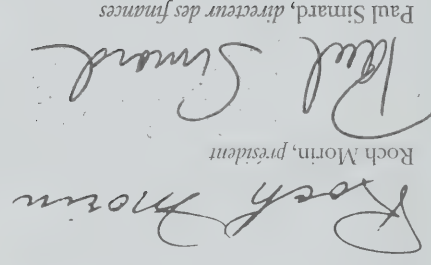 Roch Morin
Roch Morin, président
Paul Simard
Paul Simard, directeur des finances